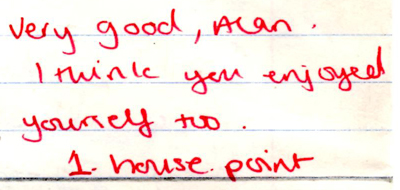 Very good, Alan.
I think you enjoyed
yourself too.
1. house point